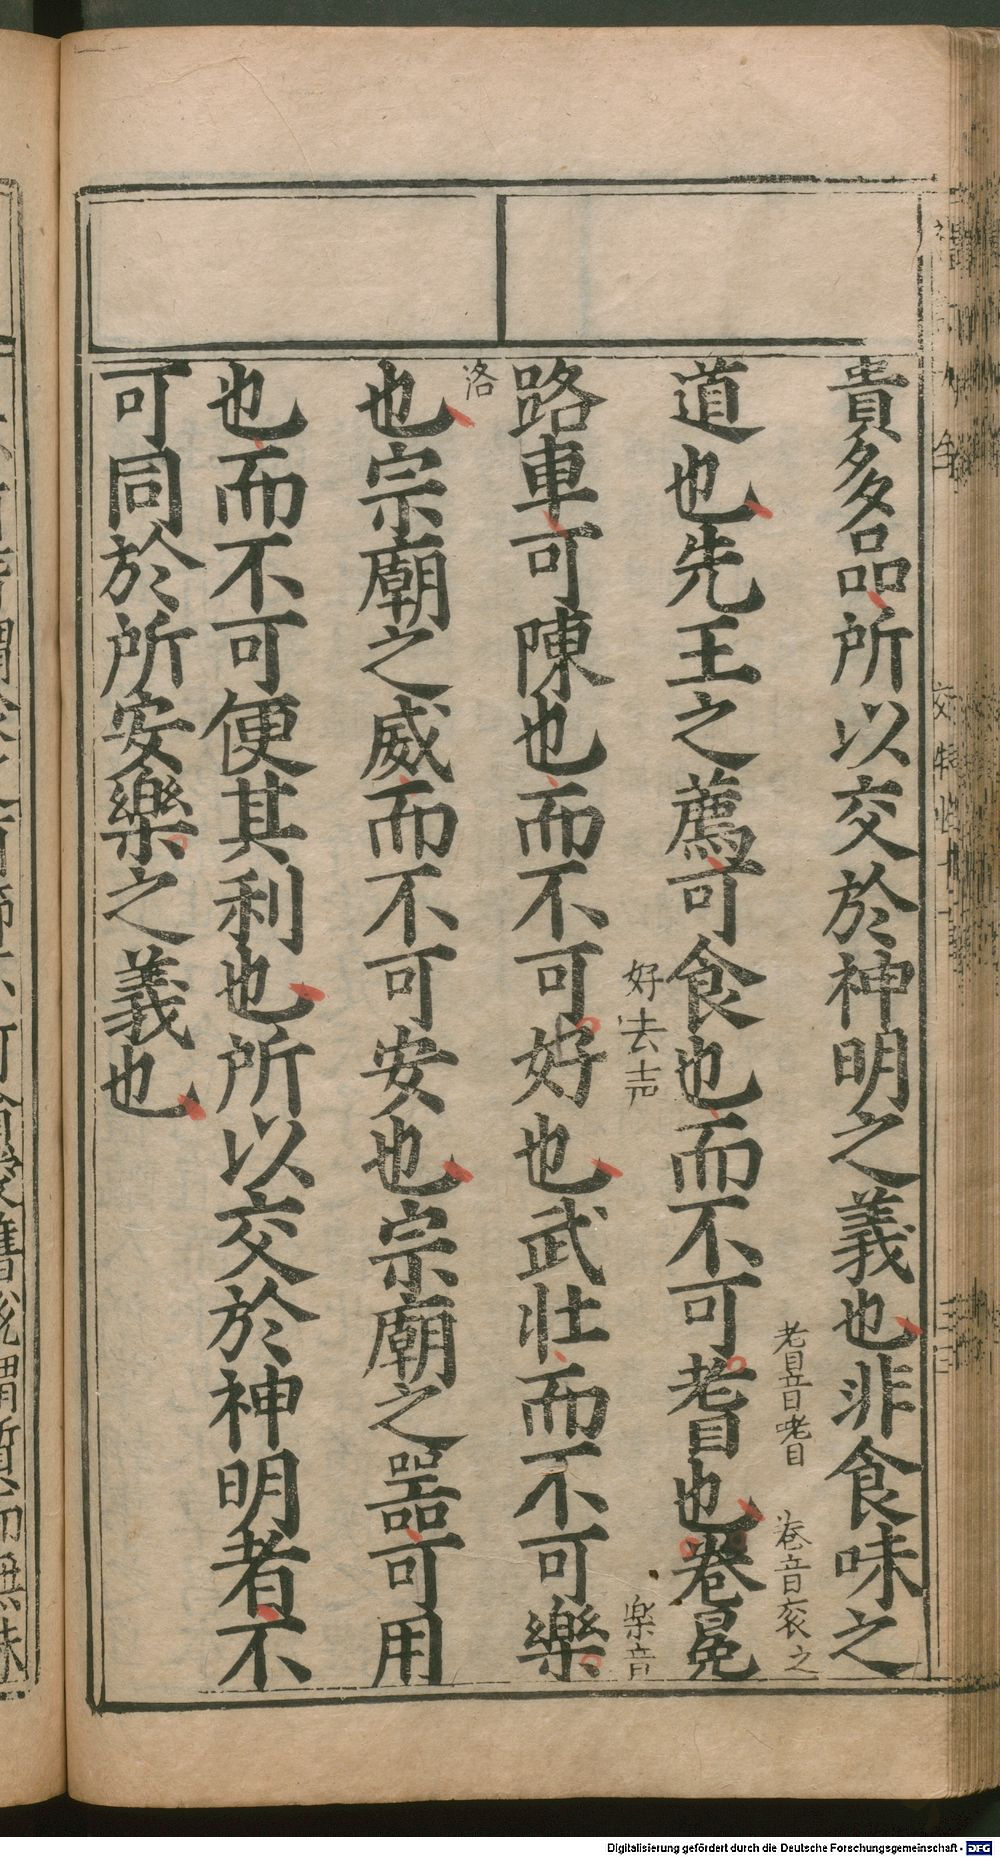 貴多品所以交於神明之義也非食味之
道也先王之薦可食也而不可耆也卷冕
耆音嗜
卷音衮之
路車可陳也而不可好也武壯而不可樂
好去声
楽音
洛
也宗廟之威而不可安也宗廟之器可用
也而不可便其利也所以交於神明者不
可同於所安樂之義也
Digitalisierung gefördert durch die Deutsche Forschungsgemeinschaft - DFG